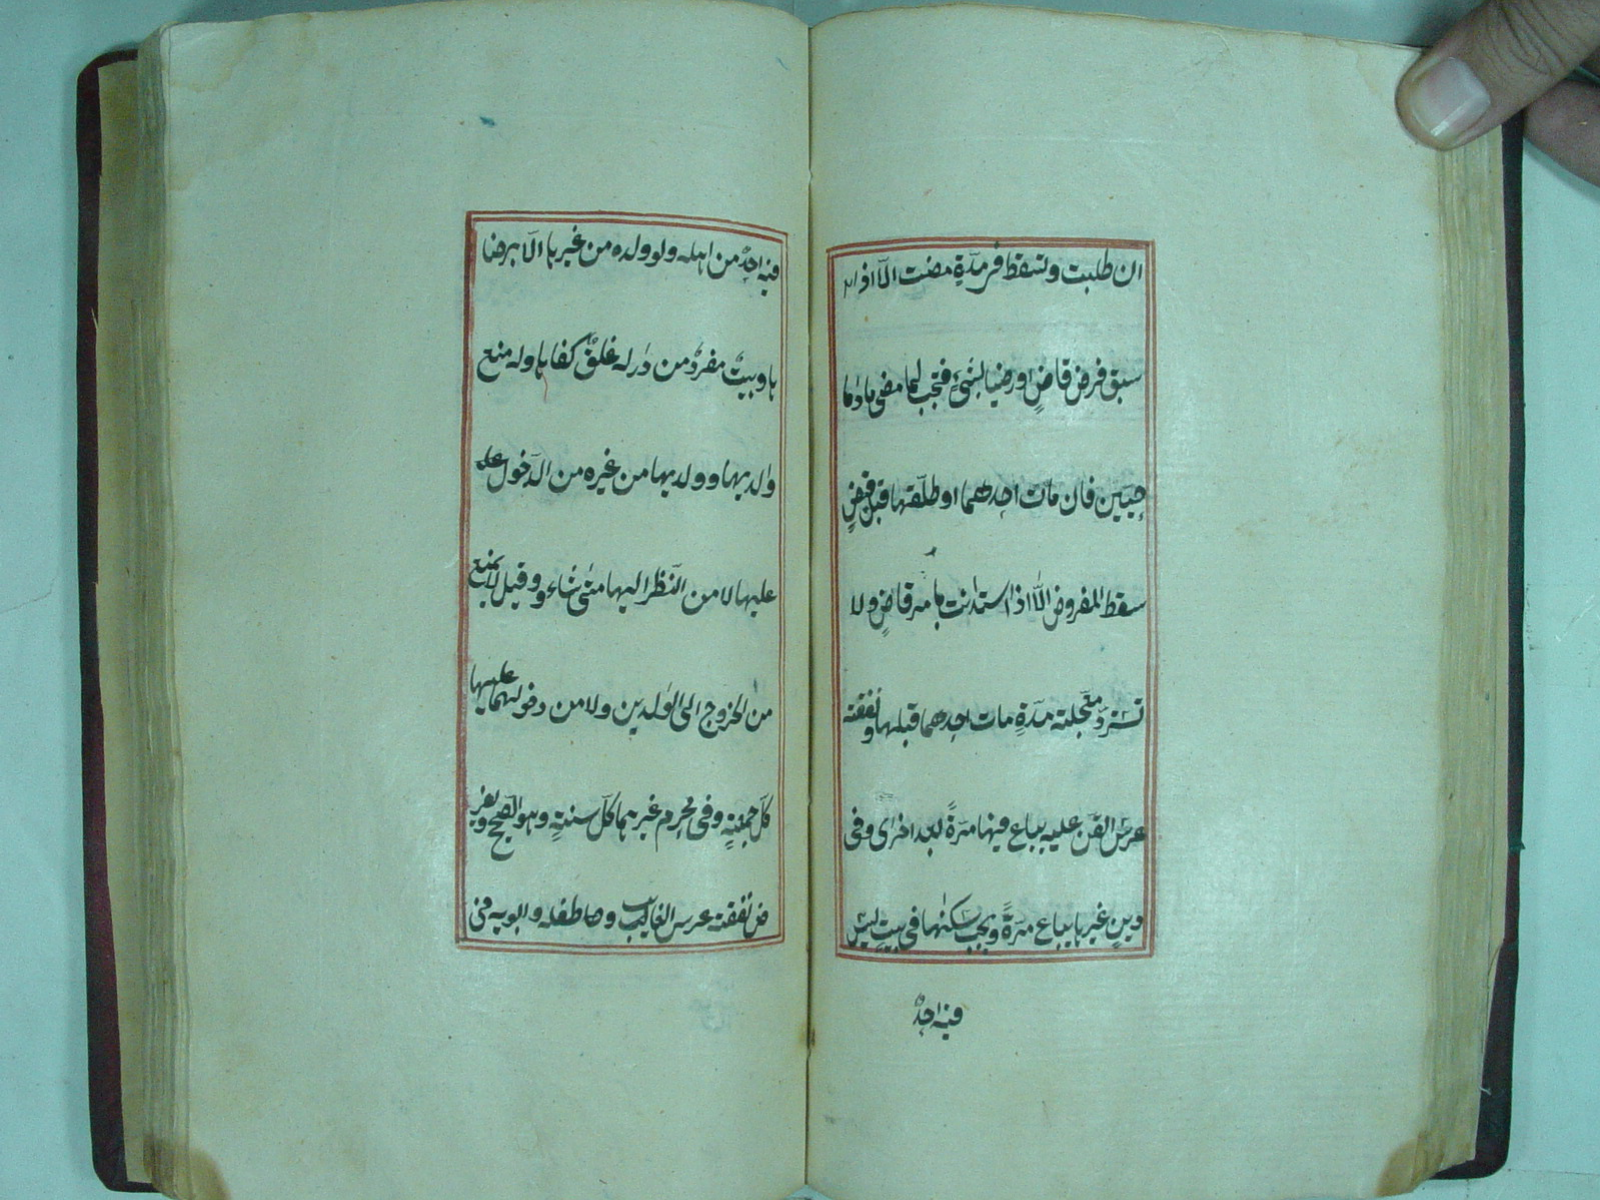 ان طلبت وتسقط فى مدّةٍ مضت الّا اذا
سبق فرض قاضٍ او رضيا بشئٍ فتجب لما مضى ما داما
حيّين فان مات احدهما او طلّقها قبل قبضٍ
سقط المفروض الّا اذا استدانت بامر قاضٍ ولا
تستردّ معجّلة مدّةٍ مات احدهما قبلها ونفقة
عرس القنّ عليه يباع فيها مرّةً بعد اخرى وفى
دينٍ غيرها يباع مرّةً ويجب سكنها فى بيت ليس
فيه احدٌ
فيه احدٌ من اهله ولو ولده من غيرها الّا برضا
ها وبيتٌ مفردٌ من دار له غلقٌ كفاها وله منع
والديها وولديها من غيره من الدّخول
عليها لا من النّظر اليها متى شاء وقيل لا يمنع
من الخروج الى الوالدين ولا من دخولهما عليها
كلّ جمعةٍ وفى محرم غيرهما كلّ سنةٍ وهو الصّحيح ويفر
ض نفقة عرس الغايب وطفله وابويه فى